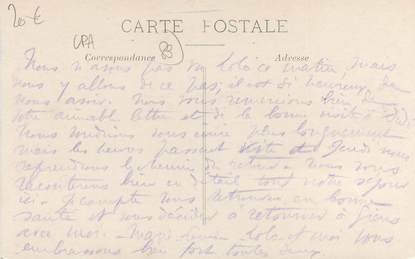 20 €
CARTE POSTALE
CPA
83
Correspondance
Adresse
Nous n'avons pas vu Lolo ce matin, mais
nous y allons de ce pas, il est si heureux
nous avoir. Nous vous remercions bien
votre aimable lettre et de la bonne visite à
Nous voudrions vous écrire plus longuement
mais les heures passent vite et Jeudi nous
reprendrons le chemin du retour. Nous vous
raconterons bien en détail tout notre séjour
ici. Je compte vous retrouver en bonne
santé et vous décider à retourner à
avec moi. Lolo et moi vous
embrassons bien fort toutes deux.